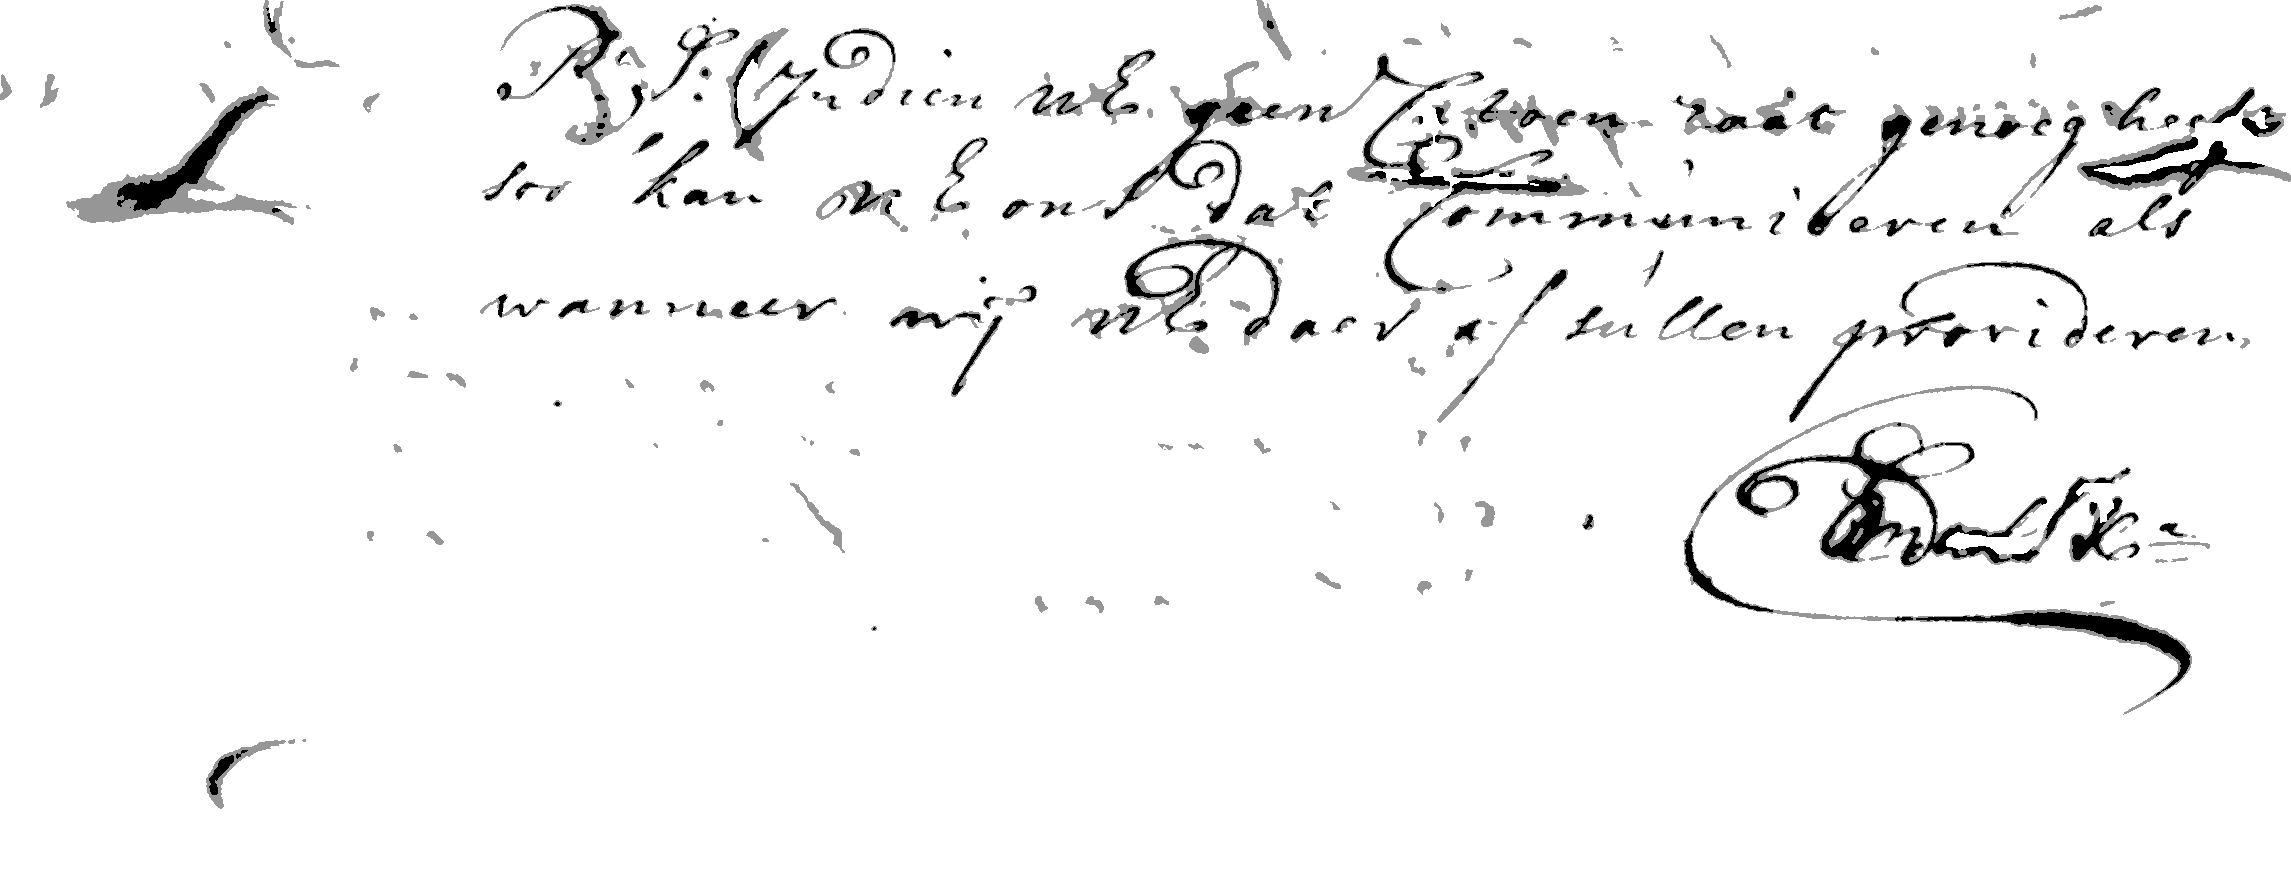 P: S: Indien UE geen Citroen genoeg heeft
soo kan UE ons dat Communiceren als
wanneer wij UE daer af sullen provideren